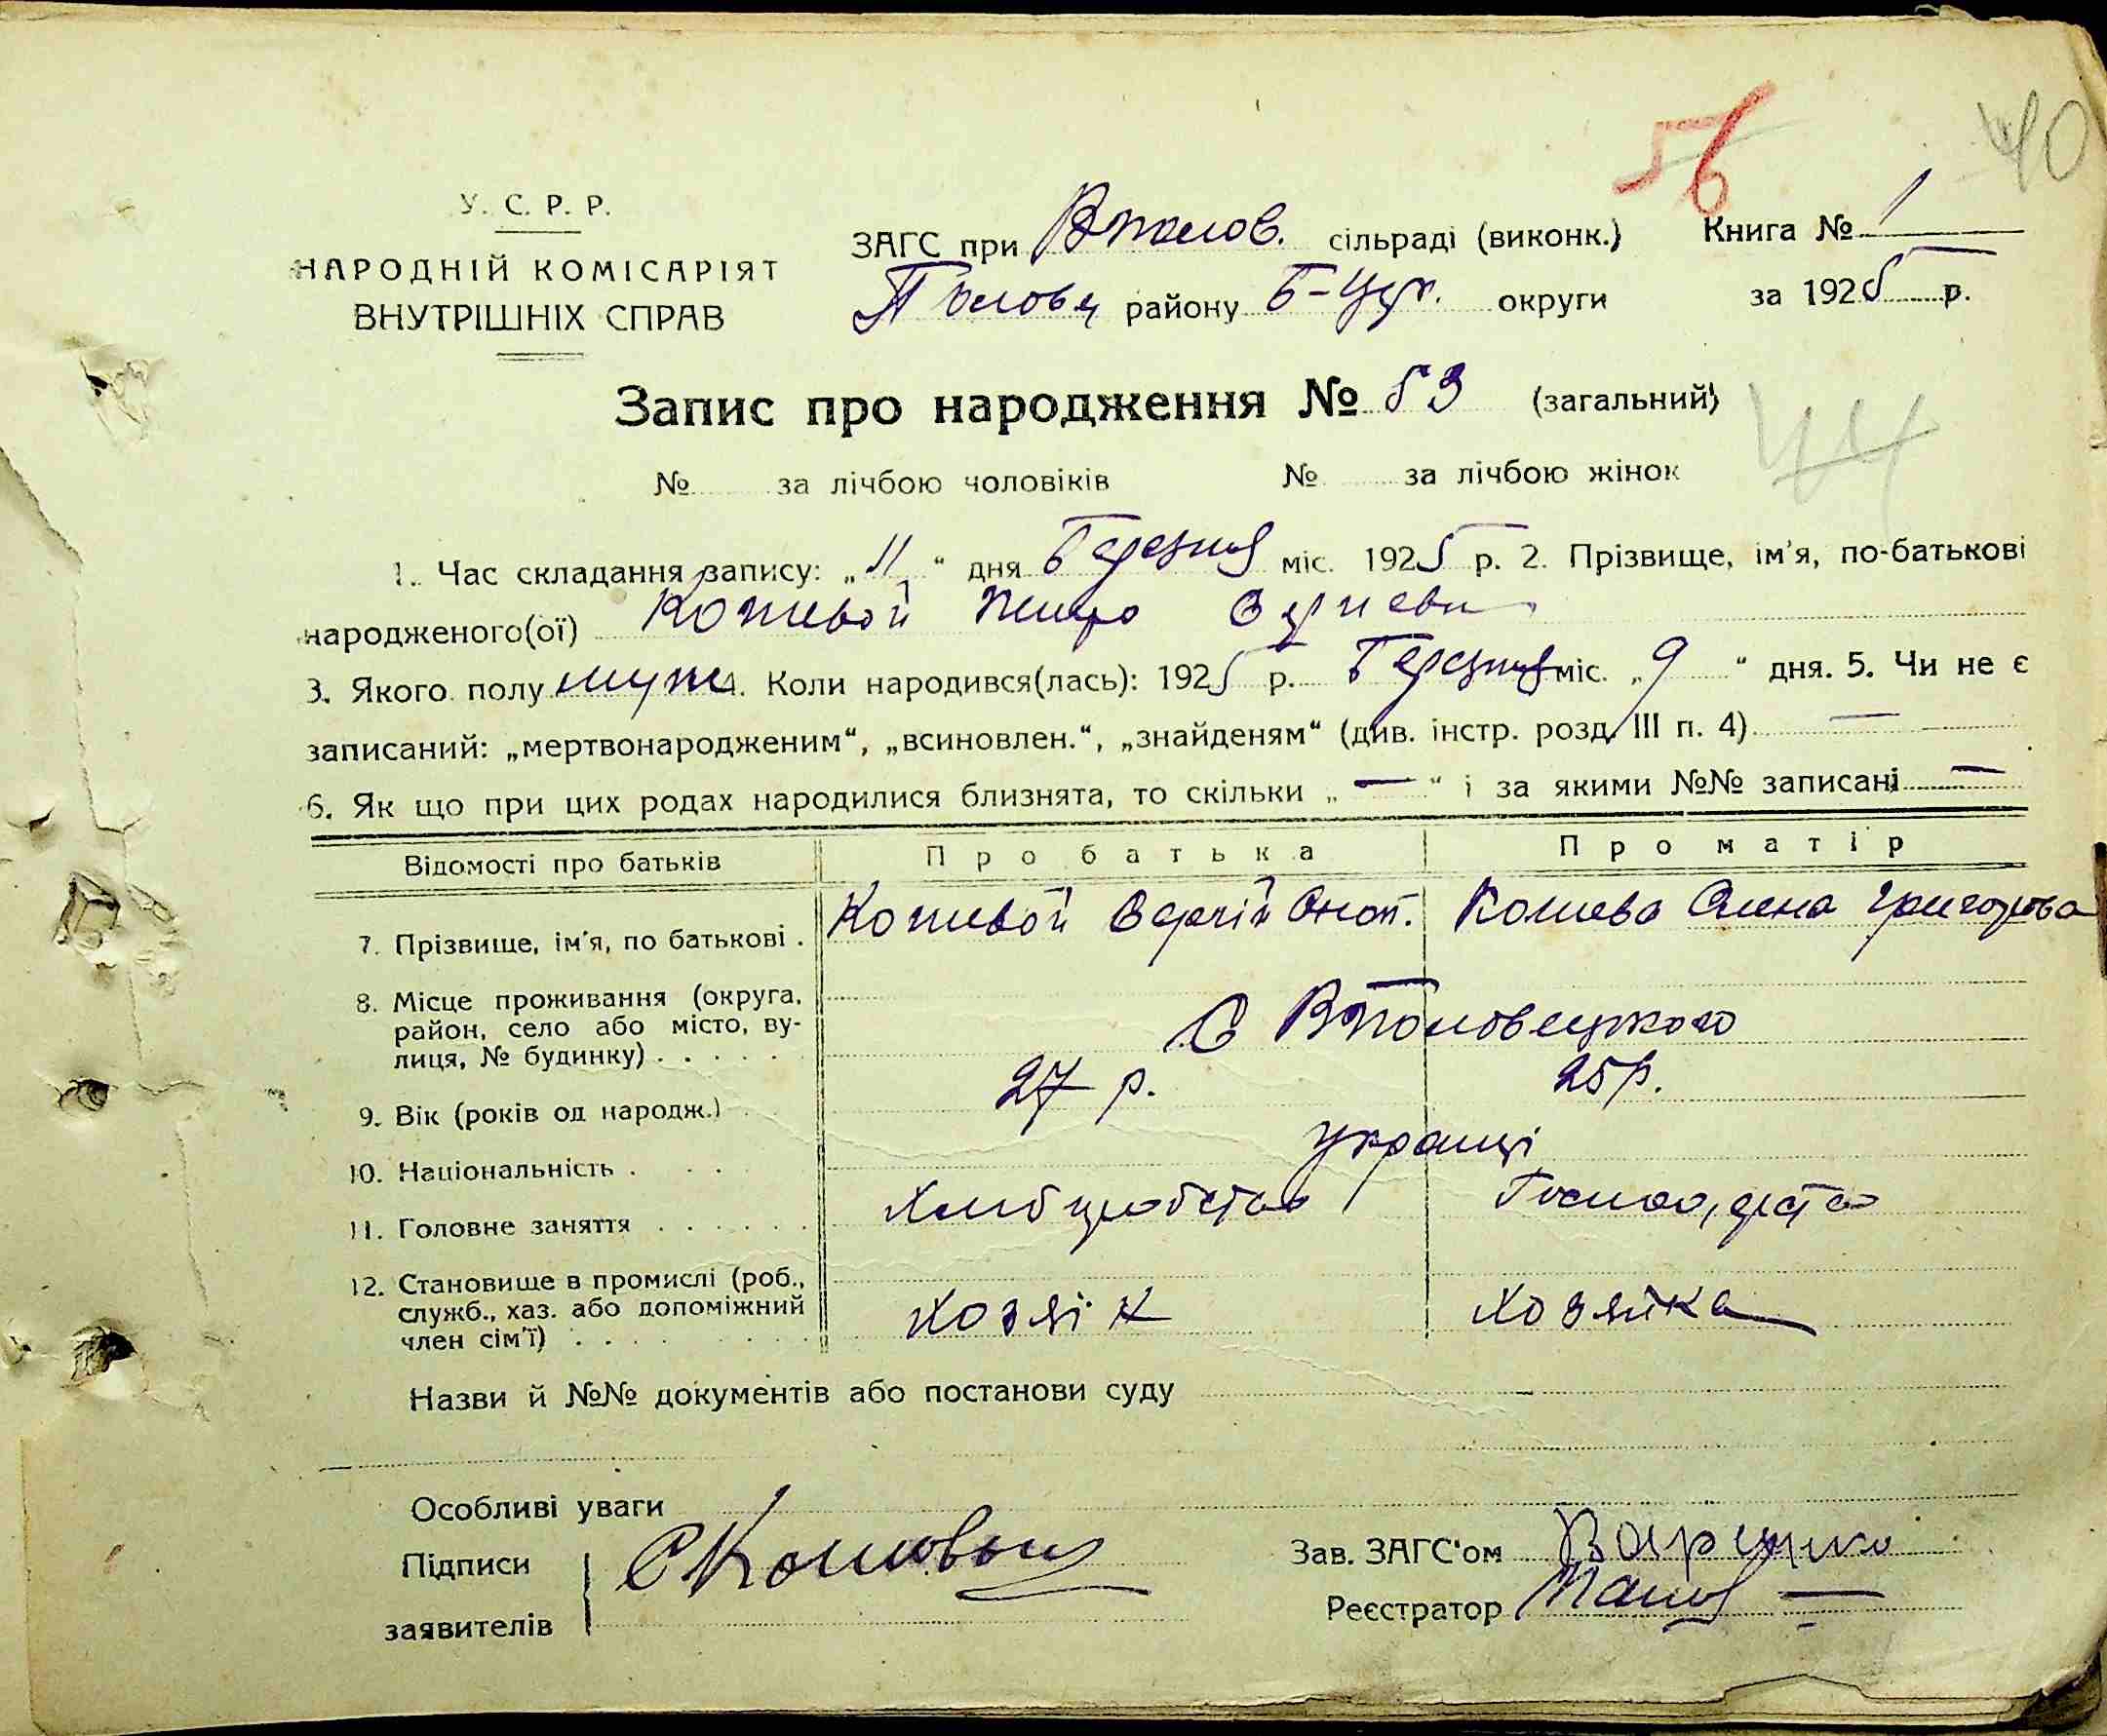 56
40
У. С. Р. Р.
НАРОДНІЙ КОМІСАРІЯТ
ВНУТРІШНІХ СПРАВ
ЗАГС при сільраді (виконк.)
району Б-Церк. округи
Книга № 1
за 1925 р.
Запис про народження № 53 (загальний)
44
№ за лічбою чоловіків № за лічбою жінок
1. Час складання запису: „11“ дня Березня міс. 1925 р. 2. Прізвище, ім'я, по-батькові
народженого(ої) Кошевой
3. Якого полу муж 4. Коли народився(лась): 1925 р. Березня міс. „9“ дня. 5. Чи не є
записаний: „мертвонародженим“, „всиновлен.“, „знайденям“ (див. інстр. розд. III п. 4) —
6. Як що при цих родах народилися близнята, то скільки „—“ і за якими №№ записані —
Відомості про батьків Про батька Про матір
7. Прізвище, ім'я, по батькові . Кошевой Сергій Кошева Олена Григорова
8. Місце проживання (округа,
район, село або місто, ву-
лиця, № будинку) . . . . .
С
9. Вік (років од народж.) 27 р. 25 р.
10. Національність . . . українці
11. Головне заняття . . . . . .
12. Становище в промислі (роб.,
служб., хаз. або допоміжний
член сім'ї) . . . .
хозяін хозяйка
Назви й №№ документів або постанови суду
Особливі уваги
Підписи
заявителів
С Кошовой
Зав. ЗАГС'ом
Реєстратор